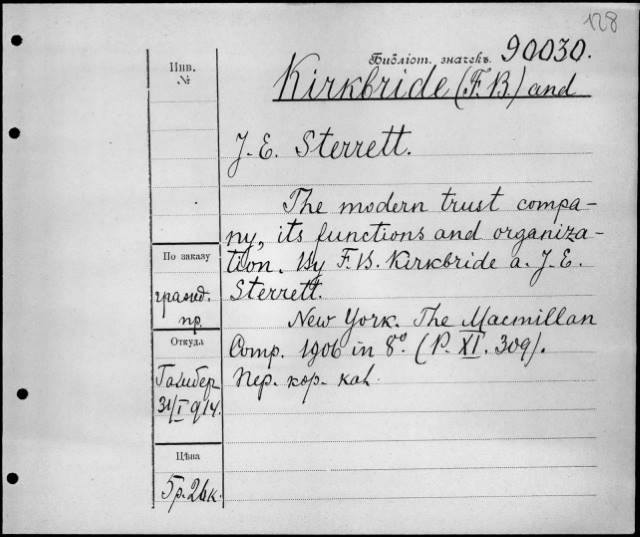 128
Инв.
№
Библіот. значекъ. 90030.
Kirkbride (F. B.) and
J. E. Sterrett.
The modern trust compa-
ny, its functions and organiza-
tion. By F. B. Kirkbride a. J. E.
Sterrett.
New York. The Macmillan
Comp. 1906 in 8° (P. XI. 309).
Пер. кор. кал.
По заказу
гражд.
пр.
Откуда
31/I 914.
Цѣна
5р. 26к.